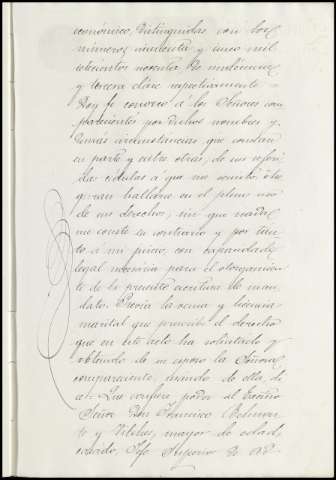 económico, distinguidas con los
números cuarenta y cinco mil
setecientos noventa de undécima
y tercera clase respectivamente
Doy fe conozco á los Señores com
parecientes por dichos nombres y
demás circunstancias que constan
en parte y entre otras, de sus referi
das cédulas á que me remito ase
guran hallarse en el pleno uso
de sus derechos, sin que nada
me conste en contrario y por tan
to á mi juicio, con capacidad
legal necesaria para el otorgamien
to de la presente escritura de man
dato. Previa la venia y licencia
marital que prescribe el derecho
que en este acto ha solicitado y
obtenido de su esposo la Señora
compareciente, usando de ella, di
ce: Que confiere poder al Excmo
Señor Don Francisco
y Vilches, mayor de edad,
casado, Jefe Superior de Ad-